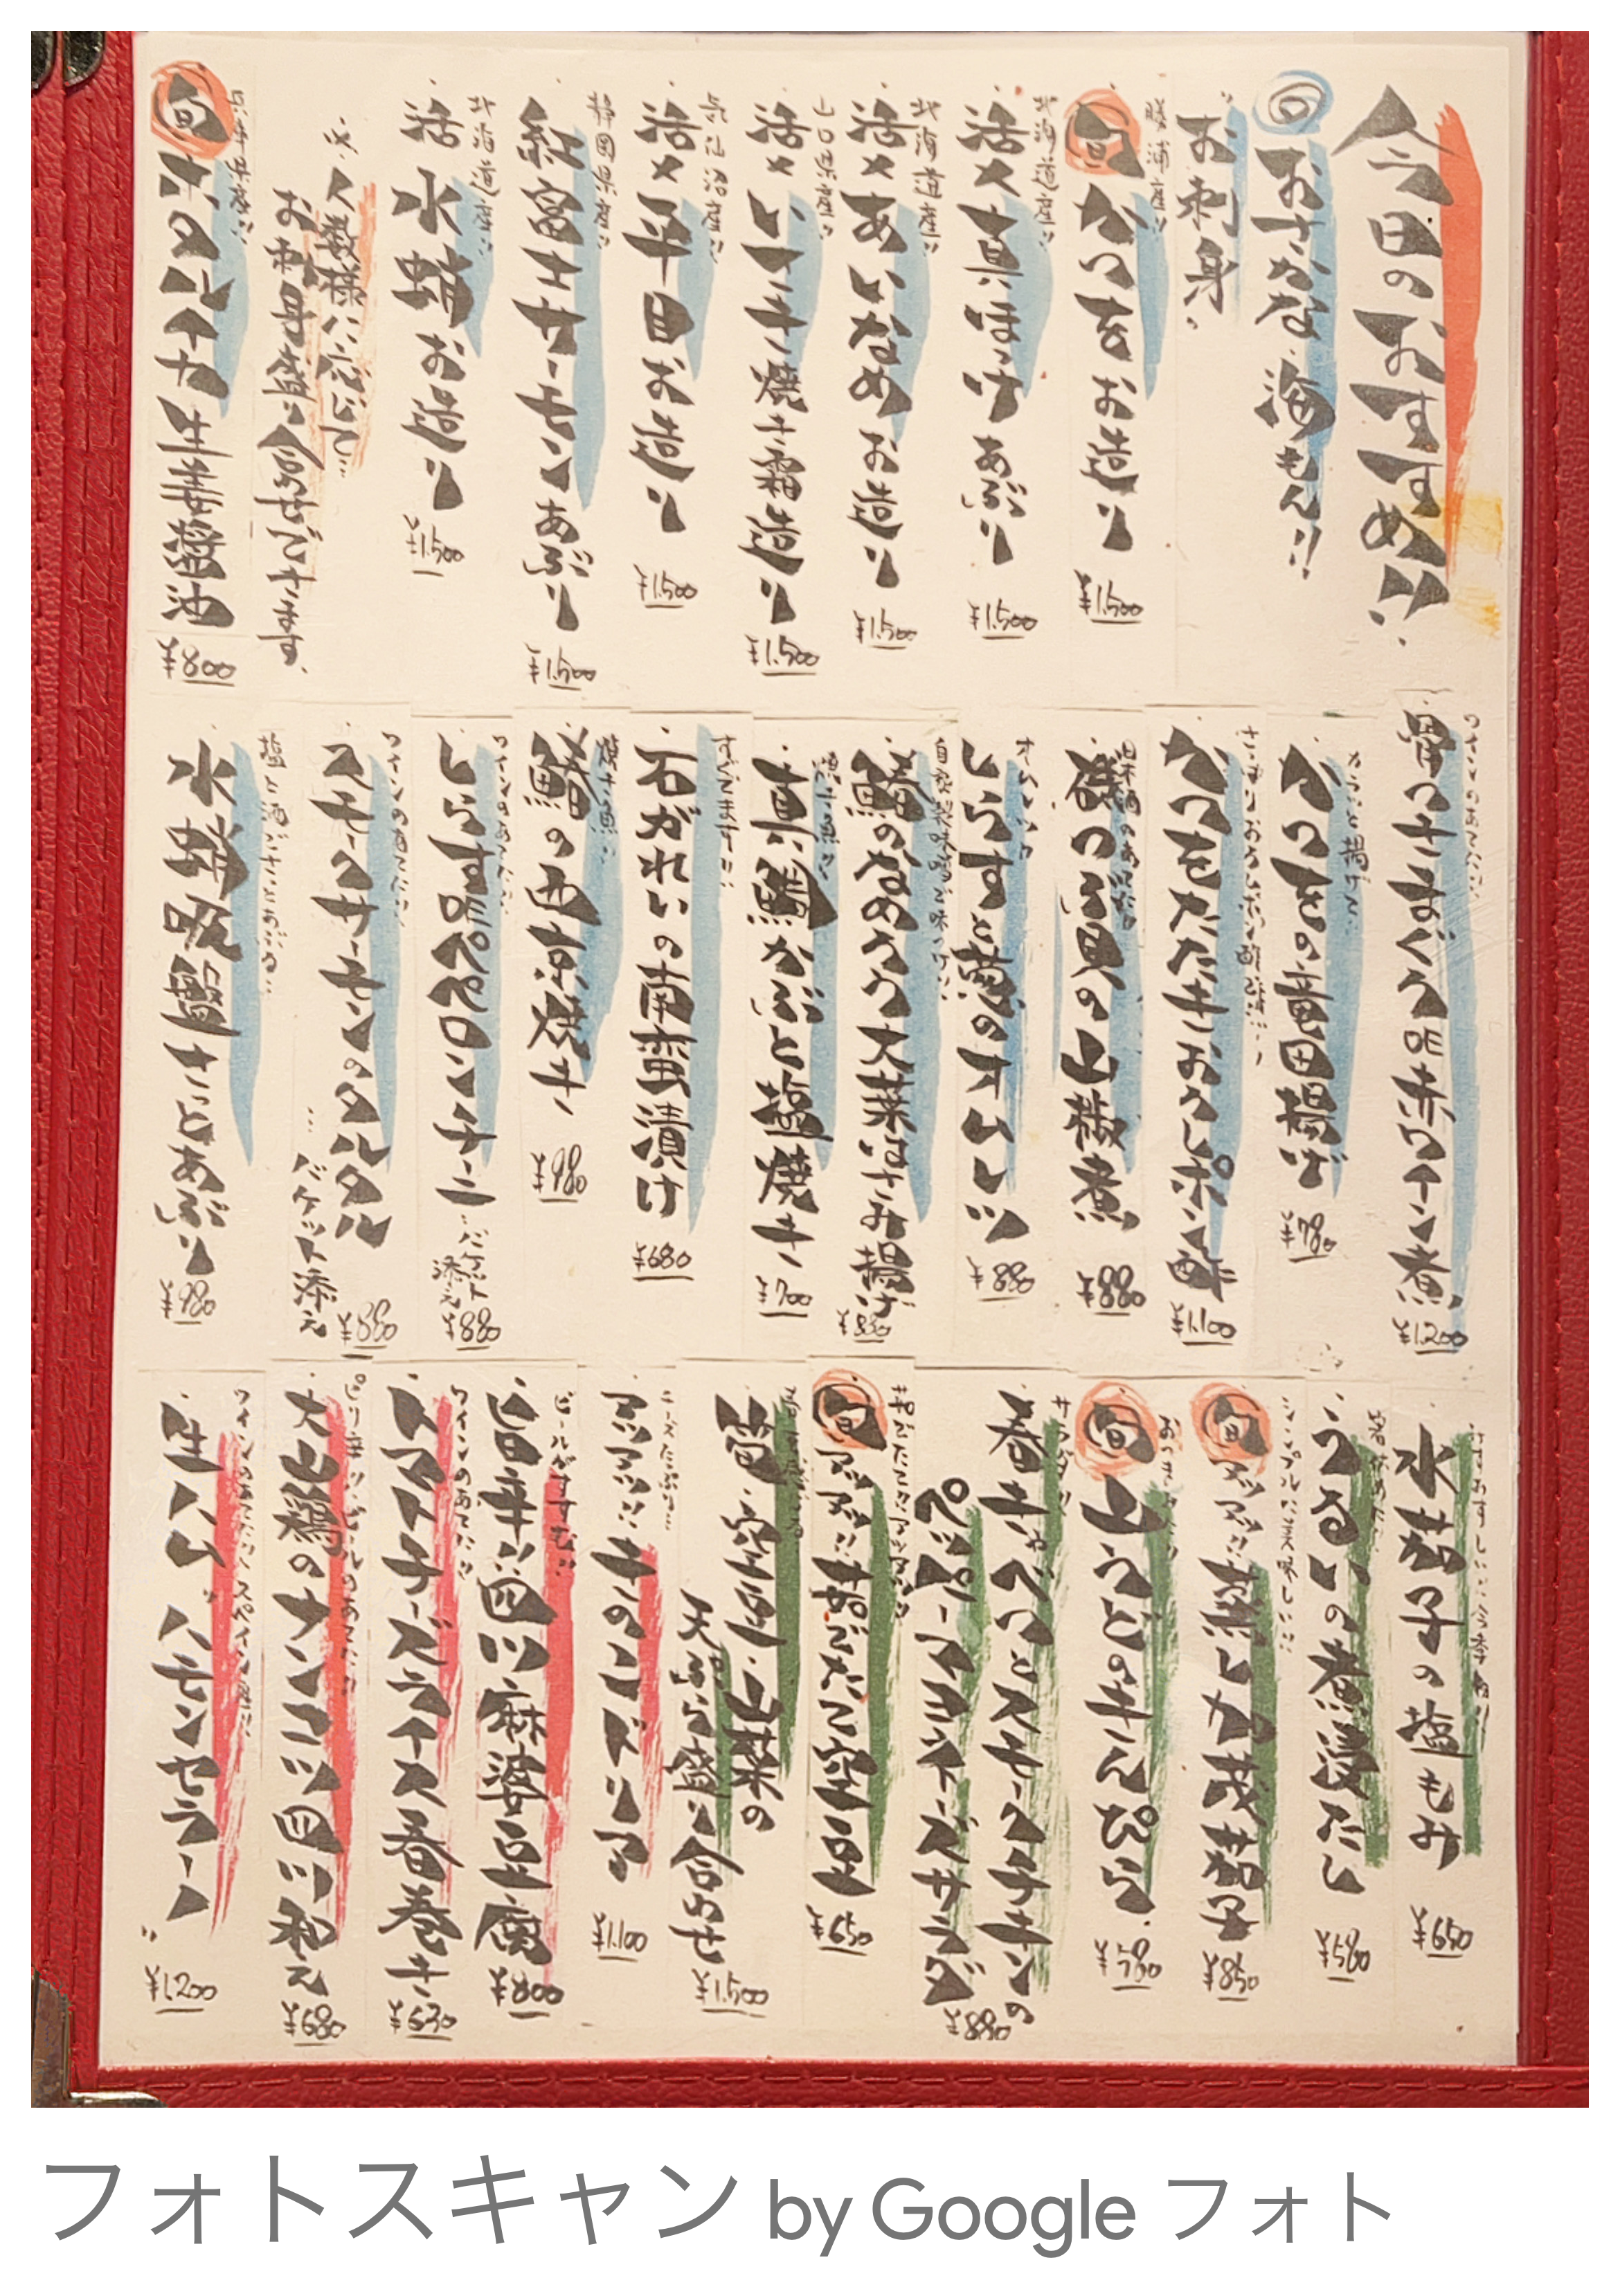 今日のおすすめ!!
おさかな 海もん!!
お刺身
勝浦産!!
旬 かつを お造り
¥1.500
北海道産!!
活〆真ほっけ あぶり
¥1.500
北海道産!!
活〆あいなめ お造り
¥1.500
山口県産!!
活〆 いさき 焼き霜造り
¥1.500
気仙沼産!!
活〆平目 お造り
¥1.500
静岡県産!!
紅富士サーモン あぶり
¥1.500
北海道産!!
活 水蛸 お造り
¥1.500
人数様に応じて…
お刺身盛り合せできます。
兵庫県産!!
旬 ホタルイカ 生姜醤油
¥800
ワインのあてに!!
骨つきまぐろ 赤ワイン煮
¥1200
カラッと揚げて!!
かつをの竜田揚げ
¥780
かつをたたき おろしポン酢
¥1.100
磯つぶ貝の山椒煮
¥880
しらすと の オムレツ
¥880
¥880
真鯛かぶと塩焼き
¥700
すぐでます!!
石がれいの南蛮漬け
¥680
の西京焼き
¥980
ワインのあてに!!
しらすペペロンチーニ
バケット添え
¥880
ワインのあてに!!
スモークサーモンのタルタル
…バケット添え
¥880
塩と酒がさっとあぶる…
水蛸吸盤 さっとあぶり
¥980
水茄子の塩もみ
¥650
うるいの煮浸し
¥580
シンプルに美味しい!!
旬 蒸し 茄子
¥850
旬 山うどのきんぴら
¥580
サラダ!!
春キャベツとスモークチキンの
ペッパーマヨネーズサラダ
¥880
旬 空豆
¥650
空豆・山菜の
天ぷら盛り合わせ
¥1.500
チーズたっぷり…
アツアツ!! きのこドリア
¥1.100
ビールがすすむ!!
旨辛い四川麻婆豆腐
¥800
ワインのあてに!!
トマトチーズライス春巻き
¥630
ピリ辛!! ビールのあてに!!
大山鶏のナンコツ四川和え
¥680
ワインのあてに!! スペイン産!!
生ハム ハモンセラーノ
¥1200
フォトスキャン by Google フォト